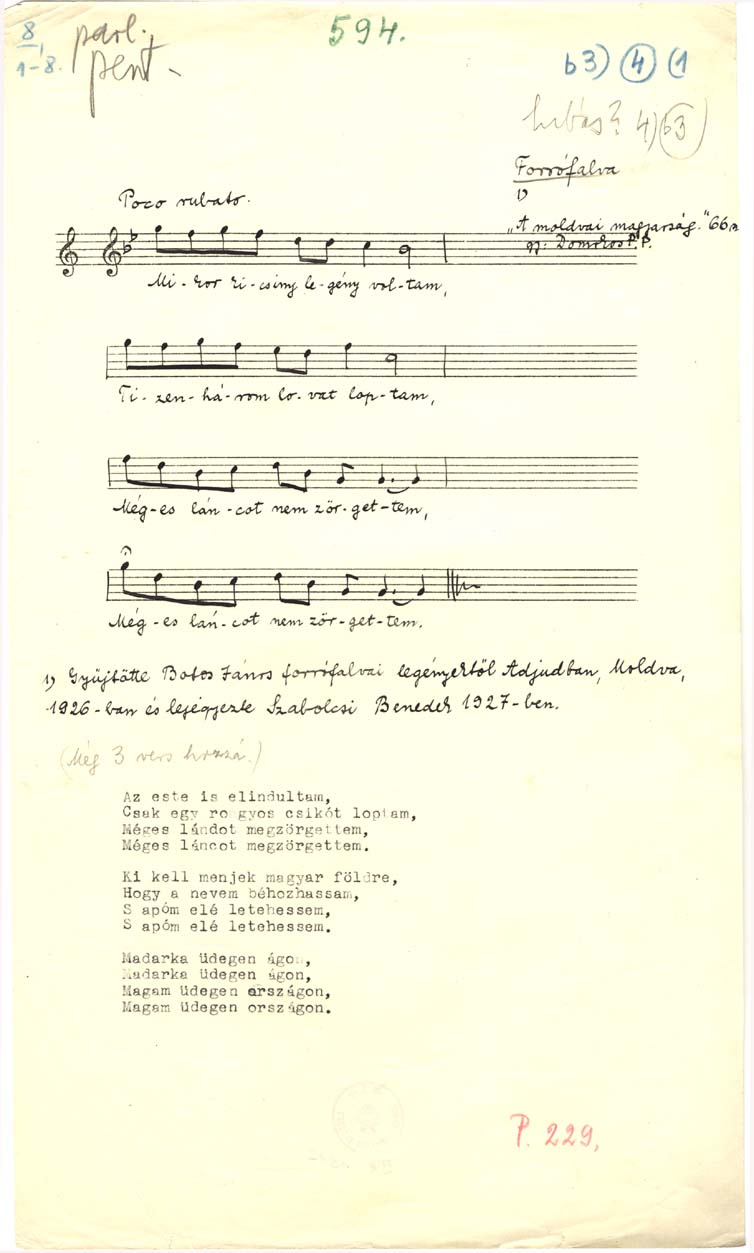 8
1-8.
parl.
pent-
594.
b3) 4 (1
hibás? 4) b3)
Forrófalva
1)
"A moldvai magyarság." 66 n.
gy. Domokos P. P.
Poco rubato.
Mi-kor ki-csiny le-gény vol-tam,
Ti-zen-há-rom lo-vat lop-tam,
Még-es lán-cot nem zör-get-tem,
Még-es lán-cot nem zör-get-tem.
1) Gyűjtötte Botos János forrófalvai legényektől Adjudban, Moldva,
1926-ban és lejegyezte Szabolcsi Benedek 1927-ben.
(Még 3 vers hozzá.)
Az este is elindultam,
Csak egy rongyos csikót loptam,
Méges lándot megzörgettem,
Méges láncot megzörgettem.
Ki kell menjek magyar földre,
Hogy a nevem béhozhassam,
S apóm elé letehessem,
S apóm elé letehessem.
Madarka üdegen ágon,
Madarka üdegen ágon,
Magam üdegen országon,
Magam üdegen országon.
P. 229,